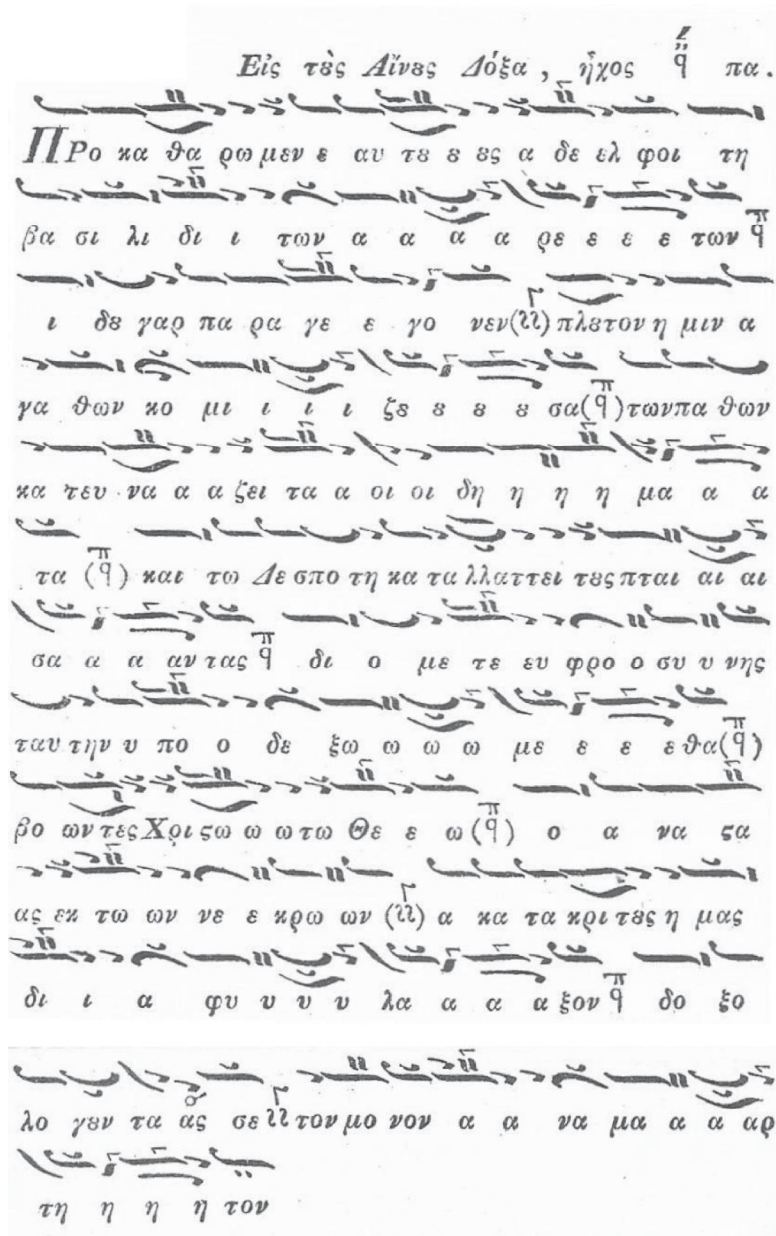 Εἰς τὲς Αἴνες Δόξα, ἦχος πα.
ΠΡο κα θα ρω μεν ε αυ τȣ ȣ ȣς α δε ελ φοι τη
βα σι λι δι ι των α α α α ρε ε ε ε των
ι δȣ γαρ πα ρα γε ε γο νεν πλȣτον η μιν α
γα θων κο μι ι ι ι ζȣ ȣ ȣ ȣ σα των πα θων
κα τευ να α α ζει τα α οι οι δη η η η μα α α
τα και τω Δε σπο τη κα τα λλαττει τȣς πται αι αι
σα α α αν τας δι ο με τε ευ φρο ο συ υ νης
ταυ την υ πο ο δε ξω ω ω ω με ε ε ε θα
βο ων τες Χρι ϛω ω ω τω Θε ε ω ο α να ϛα
ας εκ τω ων νε ε κρω ων α κα τα κρι τȣς η μας
δι ι α φυ υ υ υ λα α α α ξον δο ξο
λο γȣν τα ας σε τον μο νον α α να μα α α αρ
τη η η η τον